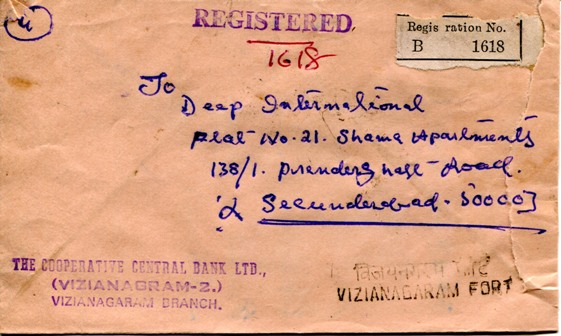 REGISTERED.
1618
Regis ration No.
B 1618
To
Deep International
Flat No. 21. Shama Apartments
138/1. Prenderghast Road.
Secunderabad - 500003
THE COOPERATIVE CENTRAL BANK LTD.,
(VIZIANAGRAM-2.)
VIZIANAGARAM BRANCH.
VIZIANAGARAM FORT